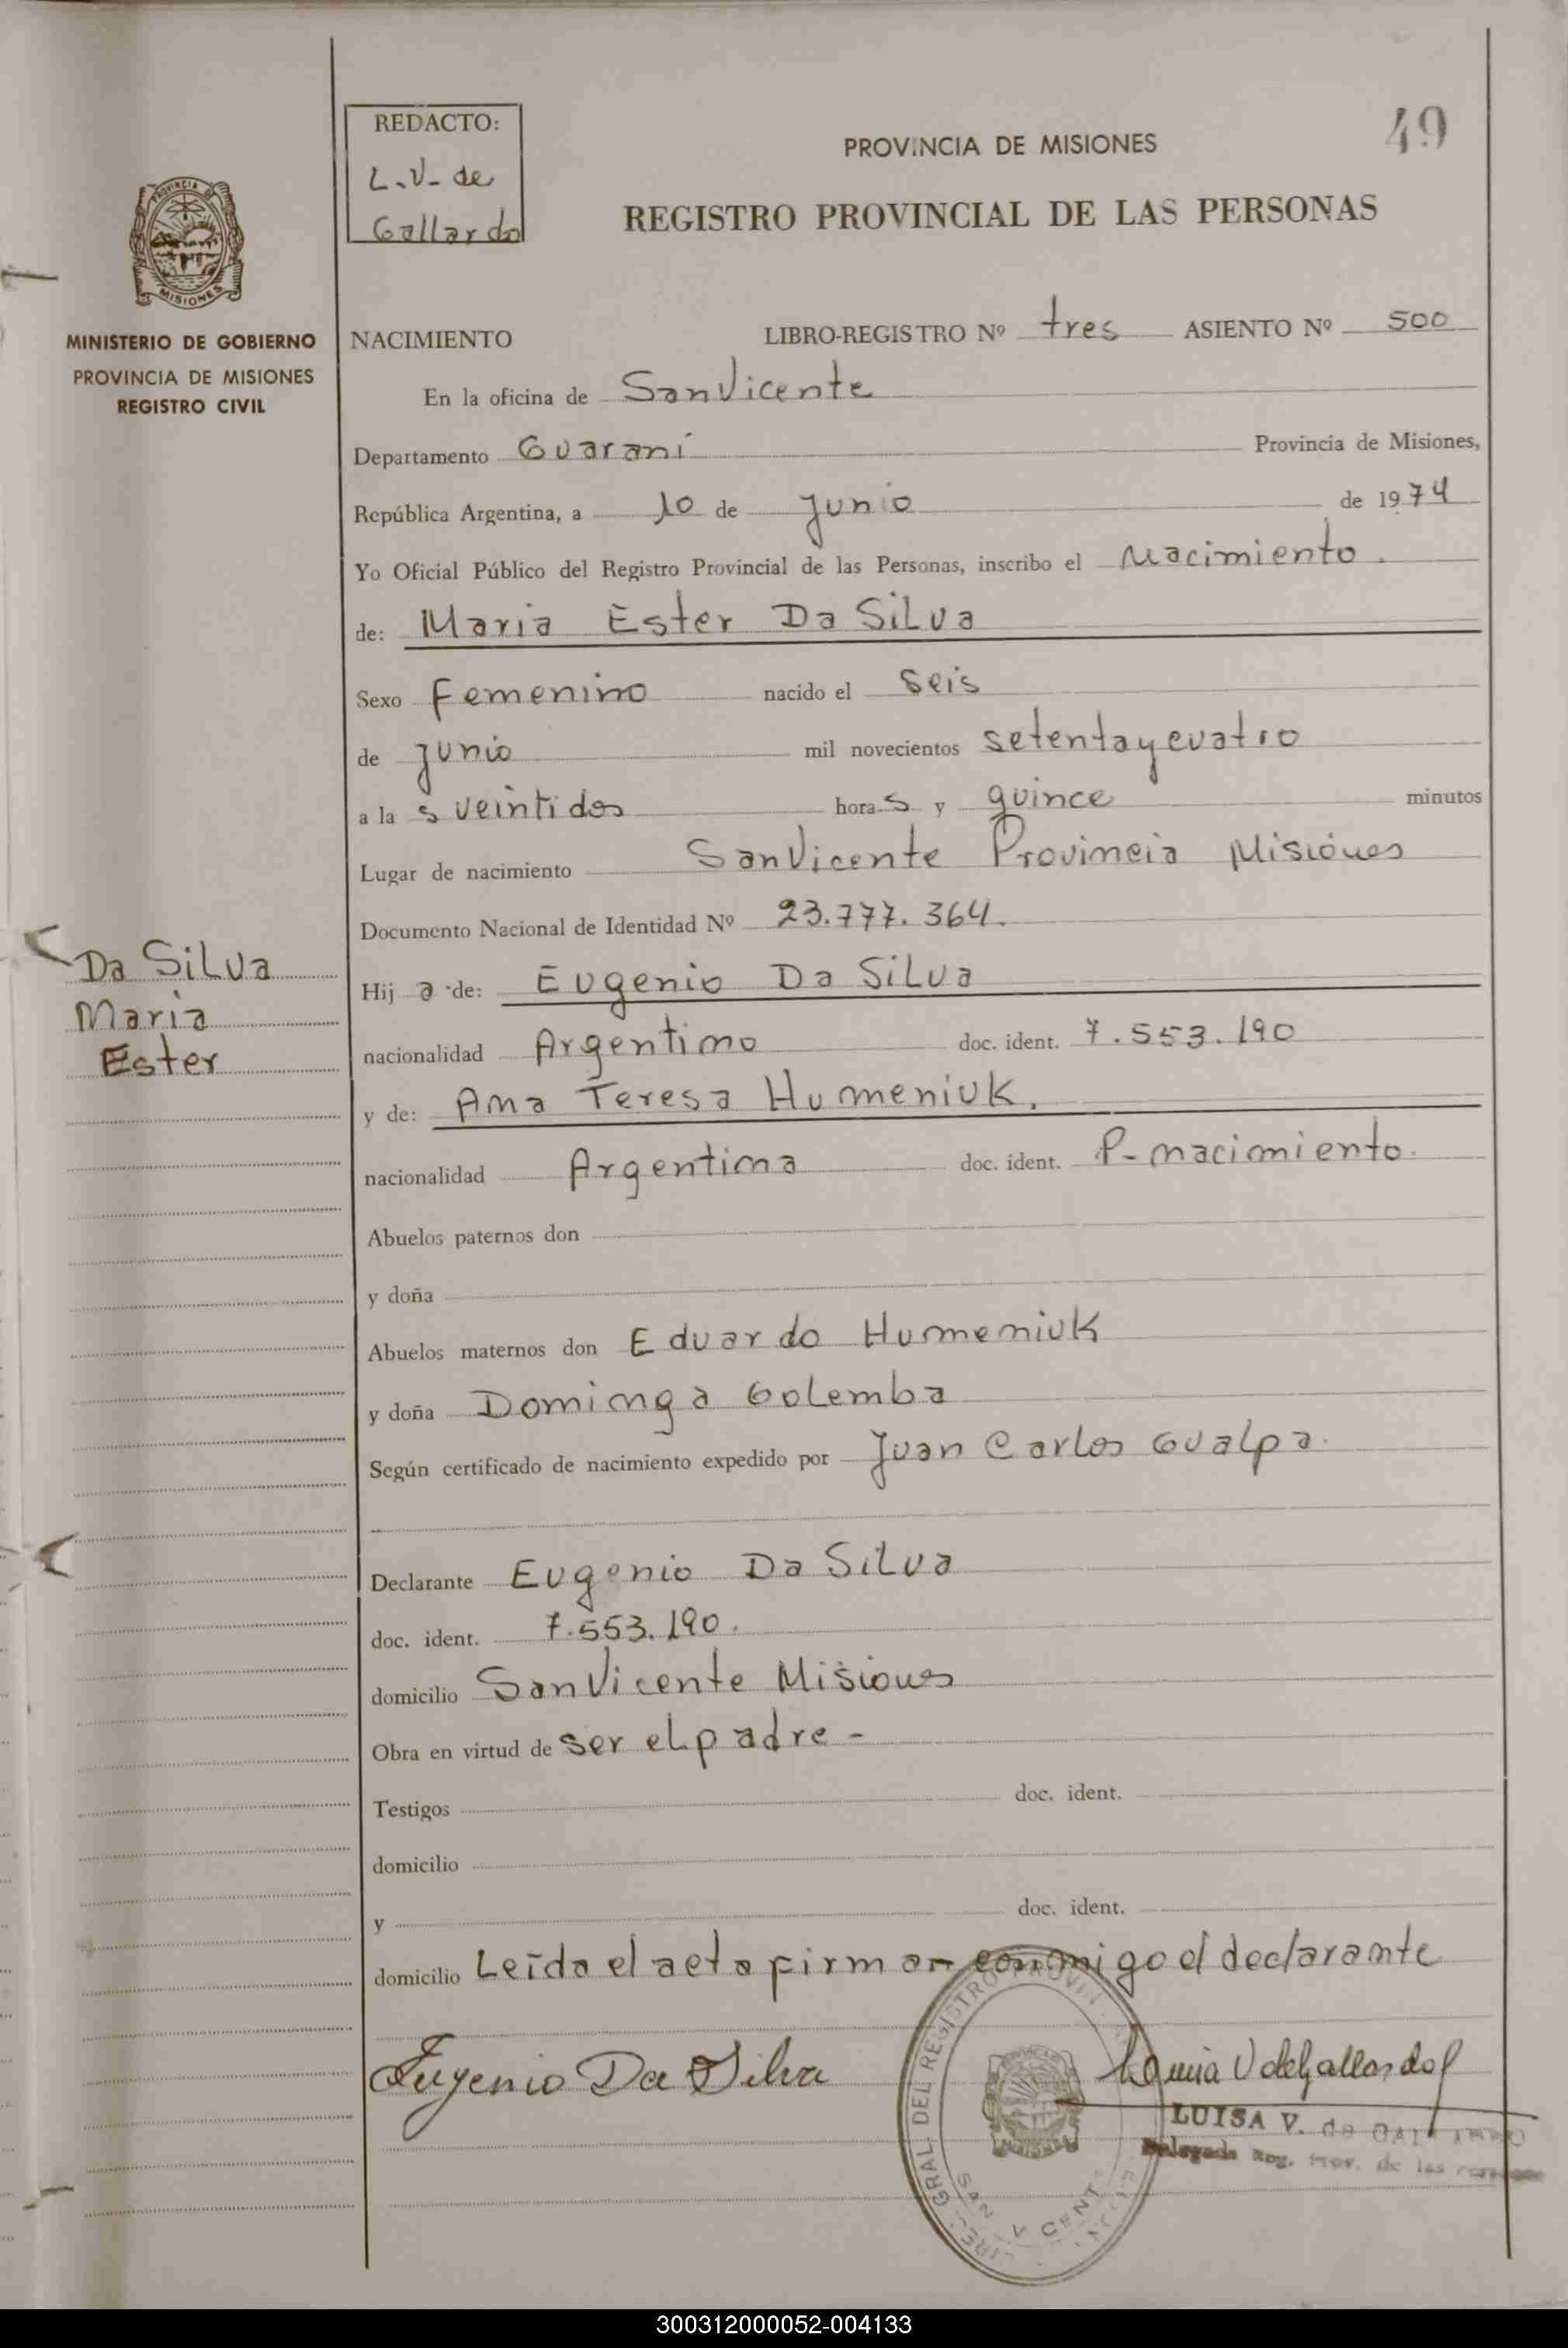 49
REDACTO:
L.V. de
Gallardo
PROVINCIA DE MISIONES
REGISTRO PROVINCIAL DE LAS PERSONAS
PROVINCIA DE
MISIONES
MINISTERIO DE GOBIERNO
PROVINCIA DE MISIONES
REGISTRO CIVIL
NACIMIENTO LIBRO-REGISTRO Nº tres ASIENTO Nº 500
En la oficina de San Vicente
Departamento Guaraní Provincia de Misiones,
República Argentina, a 10 de junio de 1974
Yo Oficial Público del Registro Provincial de las Personas, inscribo el Nacimiento.
de: Maria Ester Da Silva
Sexo Femenino nacido el seis
de junio mil novecientos setenta y cuatro
a la s veintidos hora s y quince minutos
Lugar de nacimiento San Vicente Provincia Misiones
Documento Nacional de Identidad Nº 23.777.364.
Da Silva
Maria
Ester
Hij a de: Eugenio Da Silva
nacionalidad Argentino doc. ident. 7.553.190
y de: Ana Teresa Humeniuk.
nacionalidad Argentina doc. ident. P-nacimiento.
Abuelos paternos don
y doña
Abuelos maternos don Eduardo Humeniuk
y doña Dominga Golemba
Según certificado de nacimiento expedido por Juan Carlos Gualpa.
Declarante Eugenio Da Silva
doc. ident. 7.553.190.
domicilio San Vicente Misiones
Obra en virtud de ser el padre -
Testigos doc. ident.
domicilio
y doc. ident.
domicilio Leída el acta firman conmigo el declarante
Eugenio Da Silva
Luisa V de Gallardo
LUISA V. de GALLARDO
Delegada Reg. Prov. de las Personas
GRAL. DEL REGISTRO
SAN VICENTE
300312000052-004133